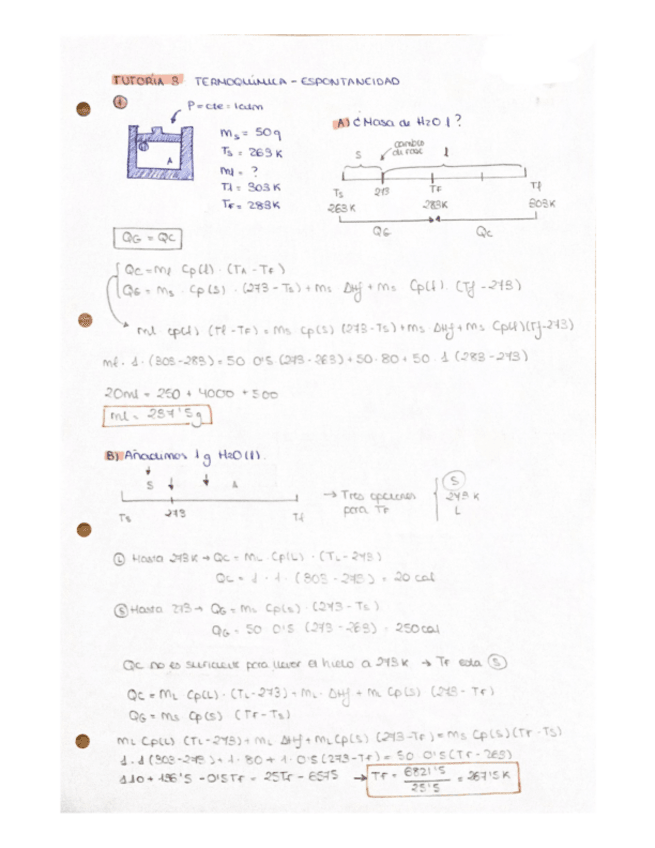 TUTORÍA 3. TERMOQUÍMICA - ESPONTANEIDAD
① P = cte = 1atm
ms = 50g
Ts = 263 K
ml = ?
Tl = 303 K
TF = 283 K
A) ¿Masa de H2O l?
S cambio de fase l
Ts 273 TF Tl
263K 283K 303K
QG QC
QG = QC
QC = ml Cp(l) · (TA - TF)
QG = ms · Cp(s) · (273 - Ts) + ms ΔHf + ms Cp(l) · (Tf - 273)
ml cp(l) (Tl - TF) = ms Cp(s) (273 - Ts) + ms ΔHf + ms Cp(l) (Tf - 273)
ml · 1 · (303 - 283) = 50 0'5 · (273 - 263) + 50 · 80 + 50 · 1 (283 - 273)
20ml = 250 + 4000 + 500
ml = 237'5g
B) Añadimos 1g H2O(l).
S
Ts 273 Tl
→ Tres opciones para TF
S
273 K
L
Ⓛ Hasta 273K → QC = mL Cp(L) · (TL - 273)
QC = 1 · 1 · (303 - 273) = 20 cal
Ⓢ Hasta 273 → QG = ms Cp(s) · (273 - Ts)
QG = 50 0'5 (273 - 263) = 250 cal
QC no es suficiente para llevar el hielo a 273K → TF esta Ⓢ
QC = mL Cp(L) · (TL - 273) + mL · ΔHf + mL Cp(s) (273 - TF)
QG = ms Cp(s) (TF - Ts)
mL Cp(L) (TL - 273) + mL ΔHf + mL Cp(s) (273 - TF) = ms Cp(s) (TF - Ts)
1 · 1 (303 - 273) + 1 · 80 + 1 · 0'5 (273 - TF) = 50 0'5 (TF - 263)
110 + 136'5 - 0'5TF = 25TF - 6575 → TF = 6821'5 / 25'5 = 267'5 K